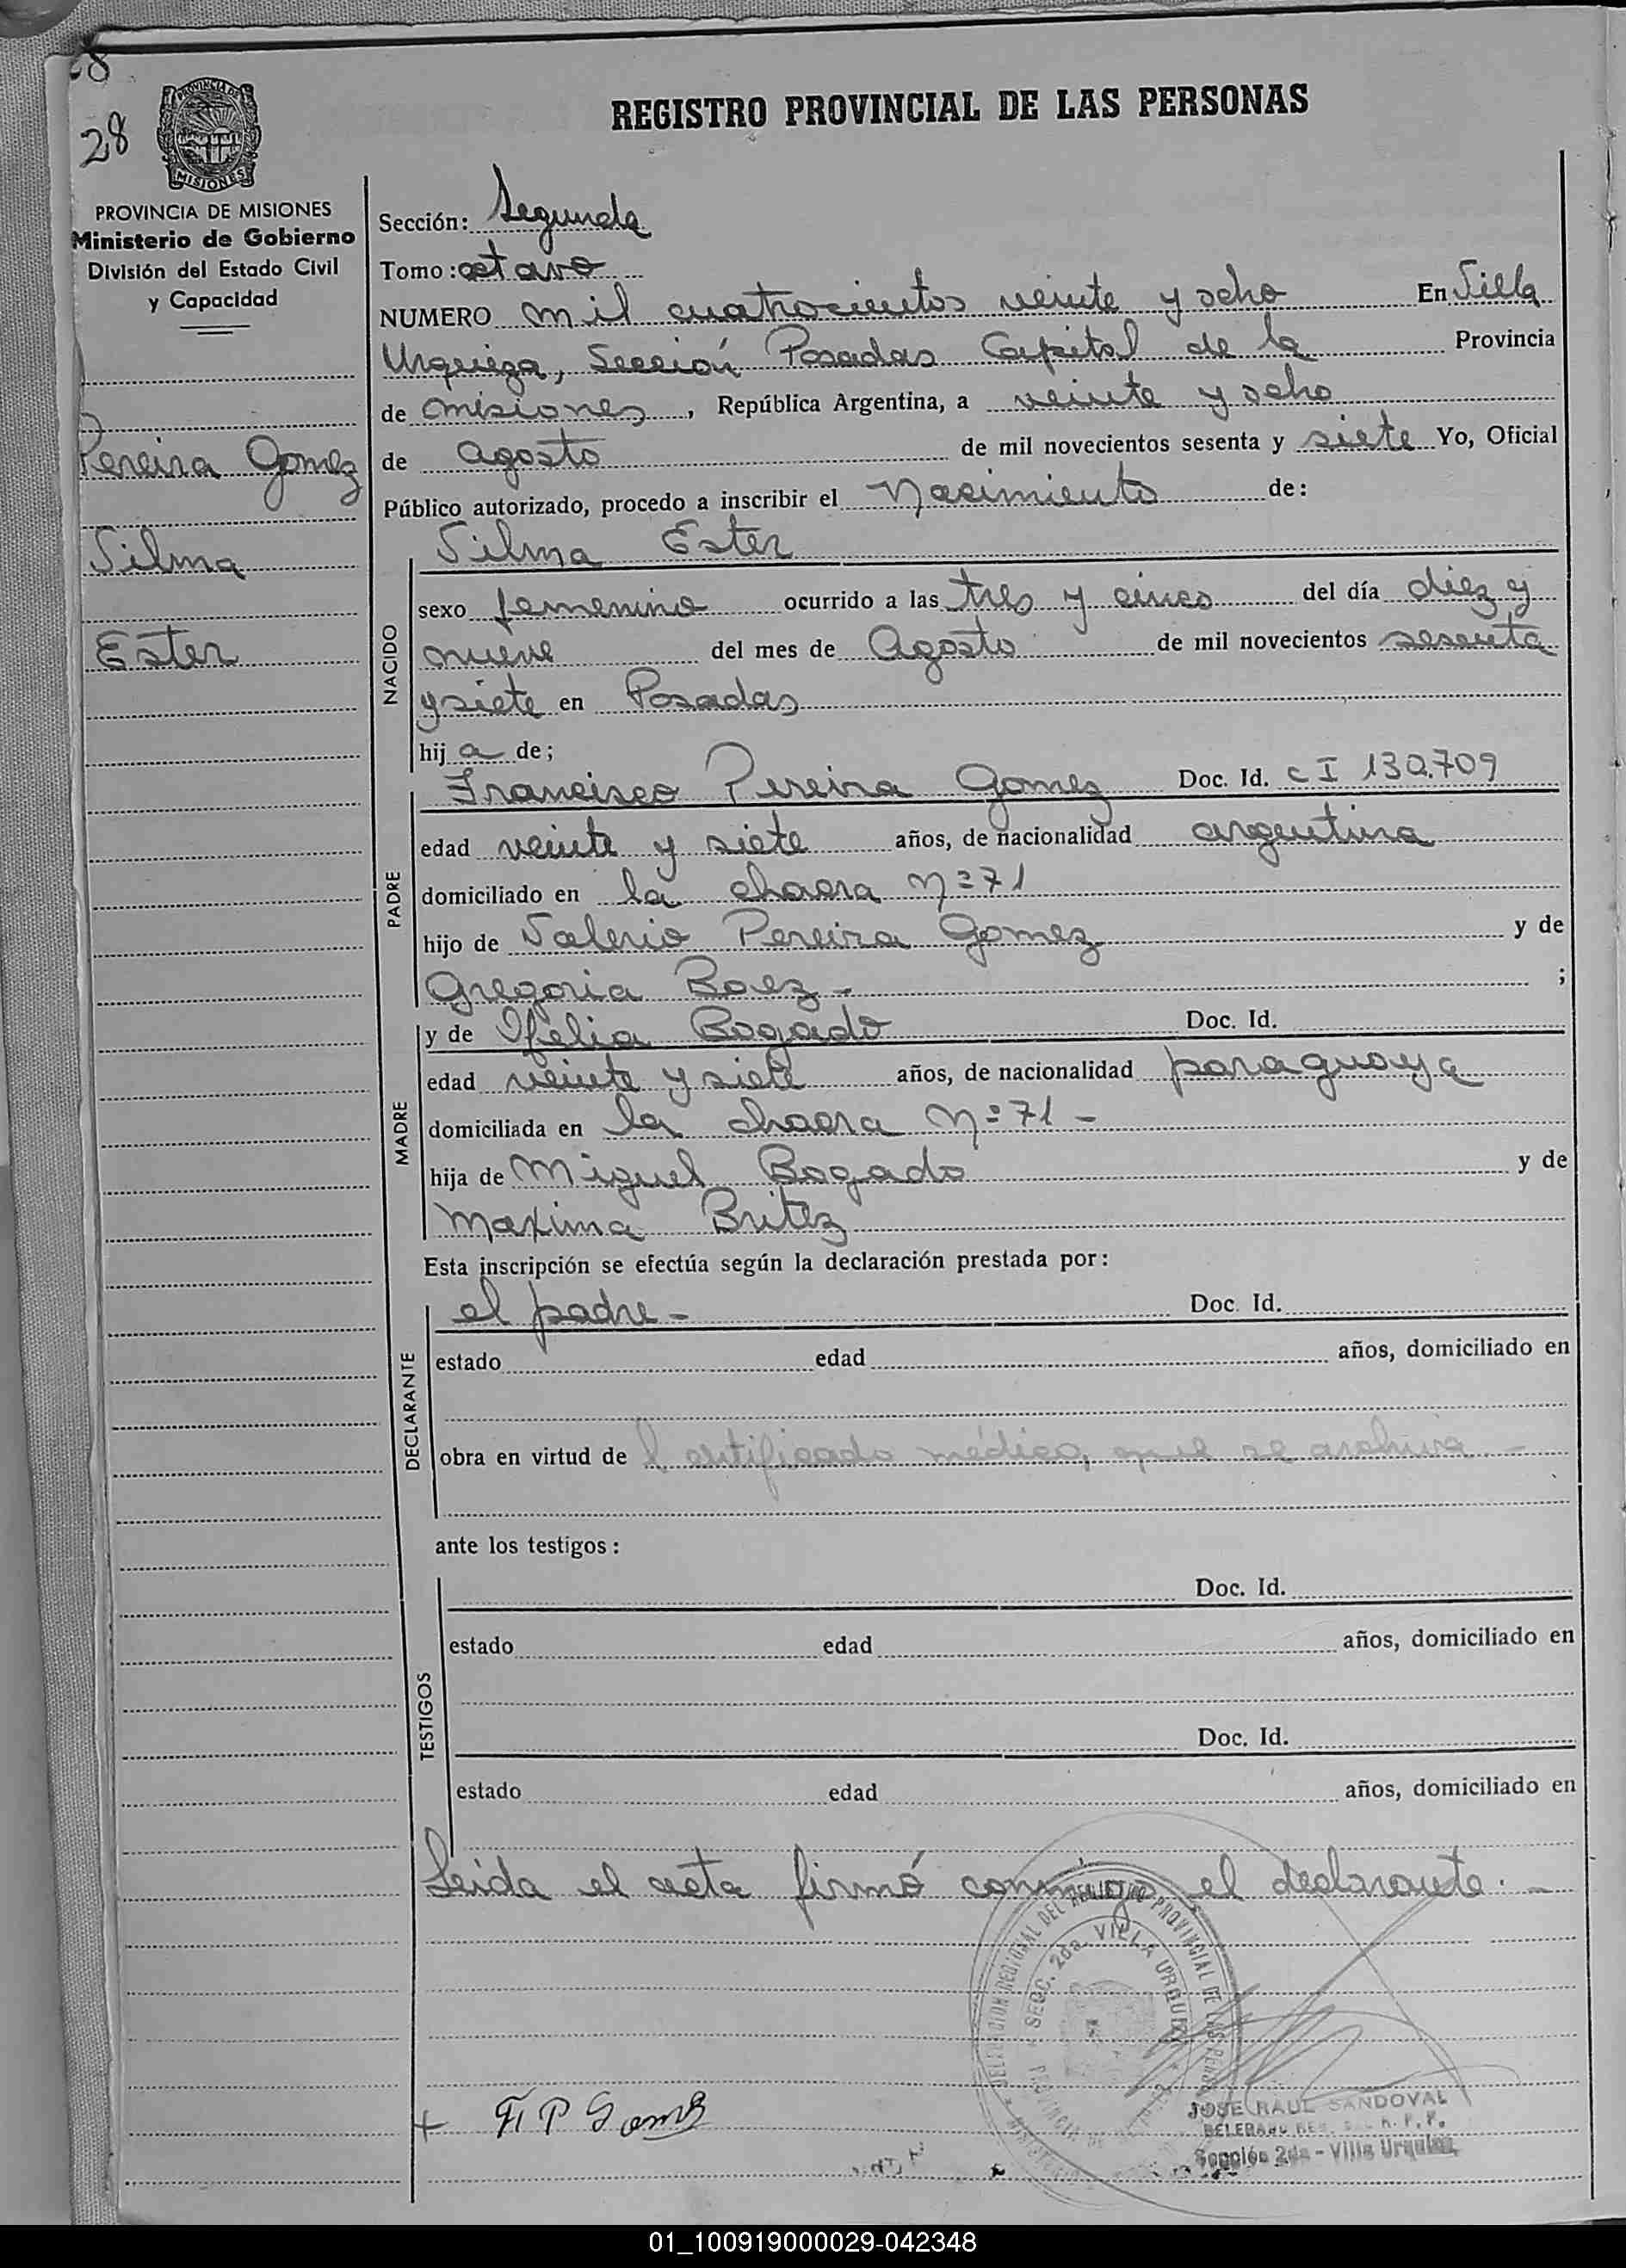 28
28
REGISTRO PROVINCIAL DE LAS PERSONAS
PROVINCIA DE
MISIONES
PROVINCIA DE MISIONES
Ministerio de Gobierno
División del Estado Civil
y Capacidad
Pereira Gomez
Silma
Ester
Sección: Segunda
Tomo: octavo
NUMERO mil cuatrocientos veinte y ocho En Villa
Urquiza, Sección Posadas Capital de la Provincia
de Misiones, República Argentina, a veinte y ocho
de Agosto de mil novecientos sesenta y siete Yo, Oficial
Público autorizado, procedo a inscribir el Nacimiento de:
Silma Ester
NACIDO
sexo femenino ocurrido a las tres y cinco del día diez y
nueve del mes de Agosto de mil novecientos sesenta
y siete en Posadas
hij a de;
PADRE
Francisco Pereira Gomez Doc. Id. C I 130.709
edad veinte y siete años, de nacionalidad argentina
domiciliado en la chacra Nº 71
hijo de Valerio Pereira Gomez y de
Gregoria Baez - ;
MADRE
y de Ofelia Bogado Doc. Id.
edad veinte y siete años, de nacionalidad paraguaya
domiciliada en la chacra Nº 71 -
hija de Miguel Bogado y de
Maxima Britez
Esta inscripción se efectúa según la declaración prestada por:
DECLARANTE
el padre - Doc. Id.
estado edad años, domiciliado en
obra en virtud de l certificado médico, que se archiva. -
ante los testigos:
TESTIGOS
Doc. Id.
estado edad años, domiciliado en
Doc. Id.
estado edad años, domiciliado en
Leida el acta firmó conmigo el declarante. -
DEL REGISTRO PROVINCIAL DE LAS PERSONAS
SECC. 2da. VILLA URQUIZA
+ F P Gomez
JOSE RAUL SANDOVAL
Sección 2da - Villa Urquiza
01_100919000029-042348